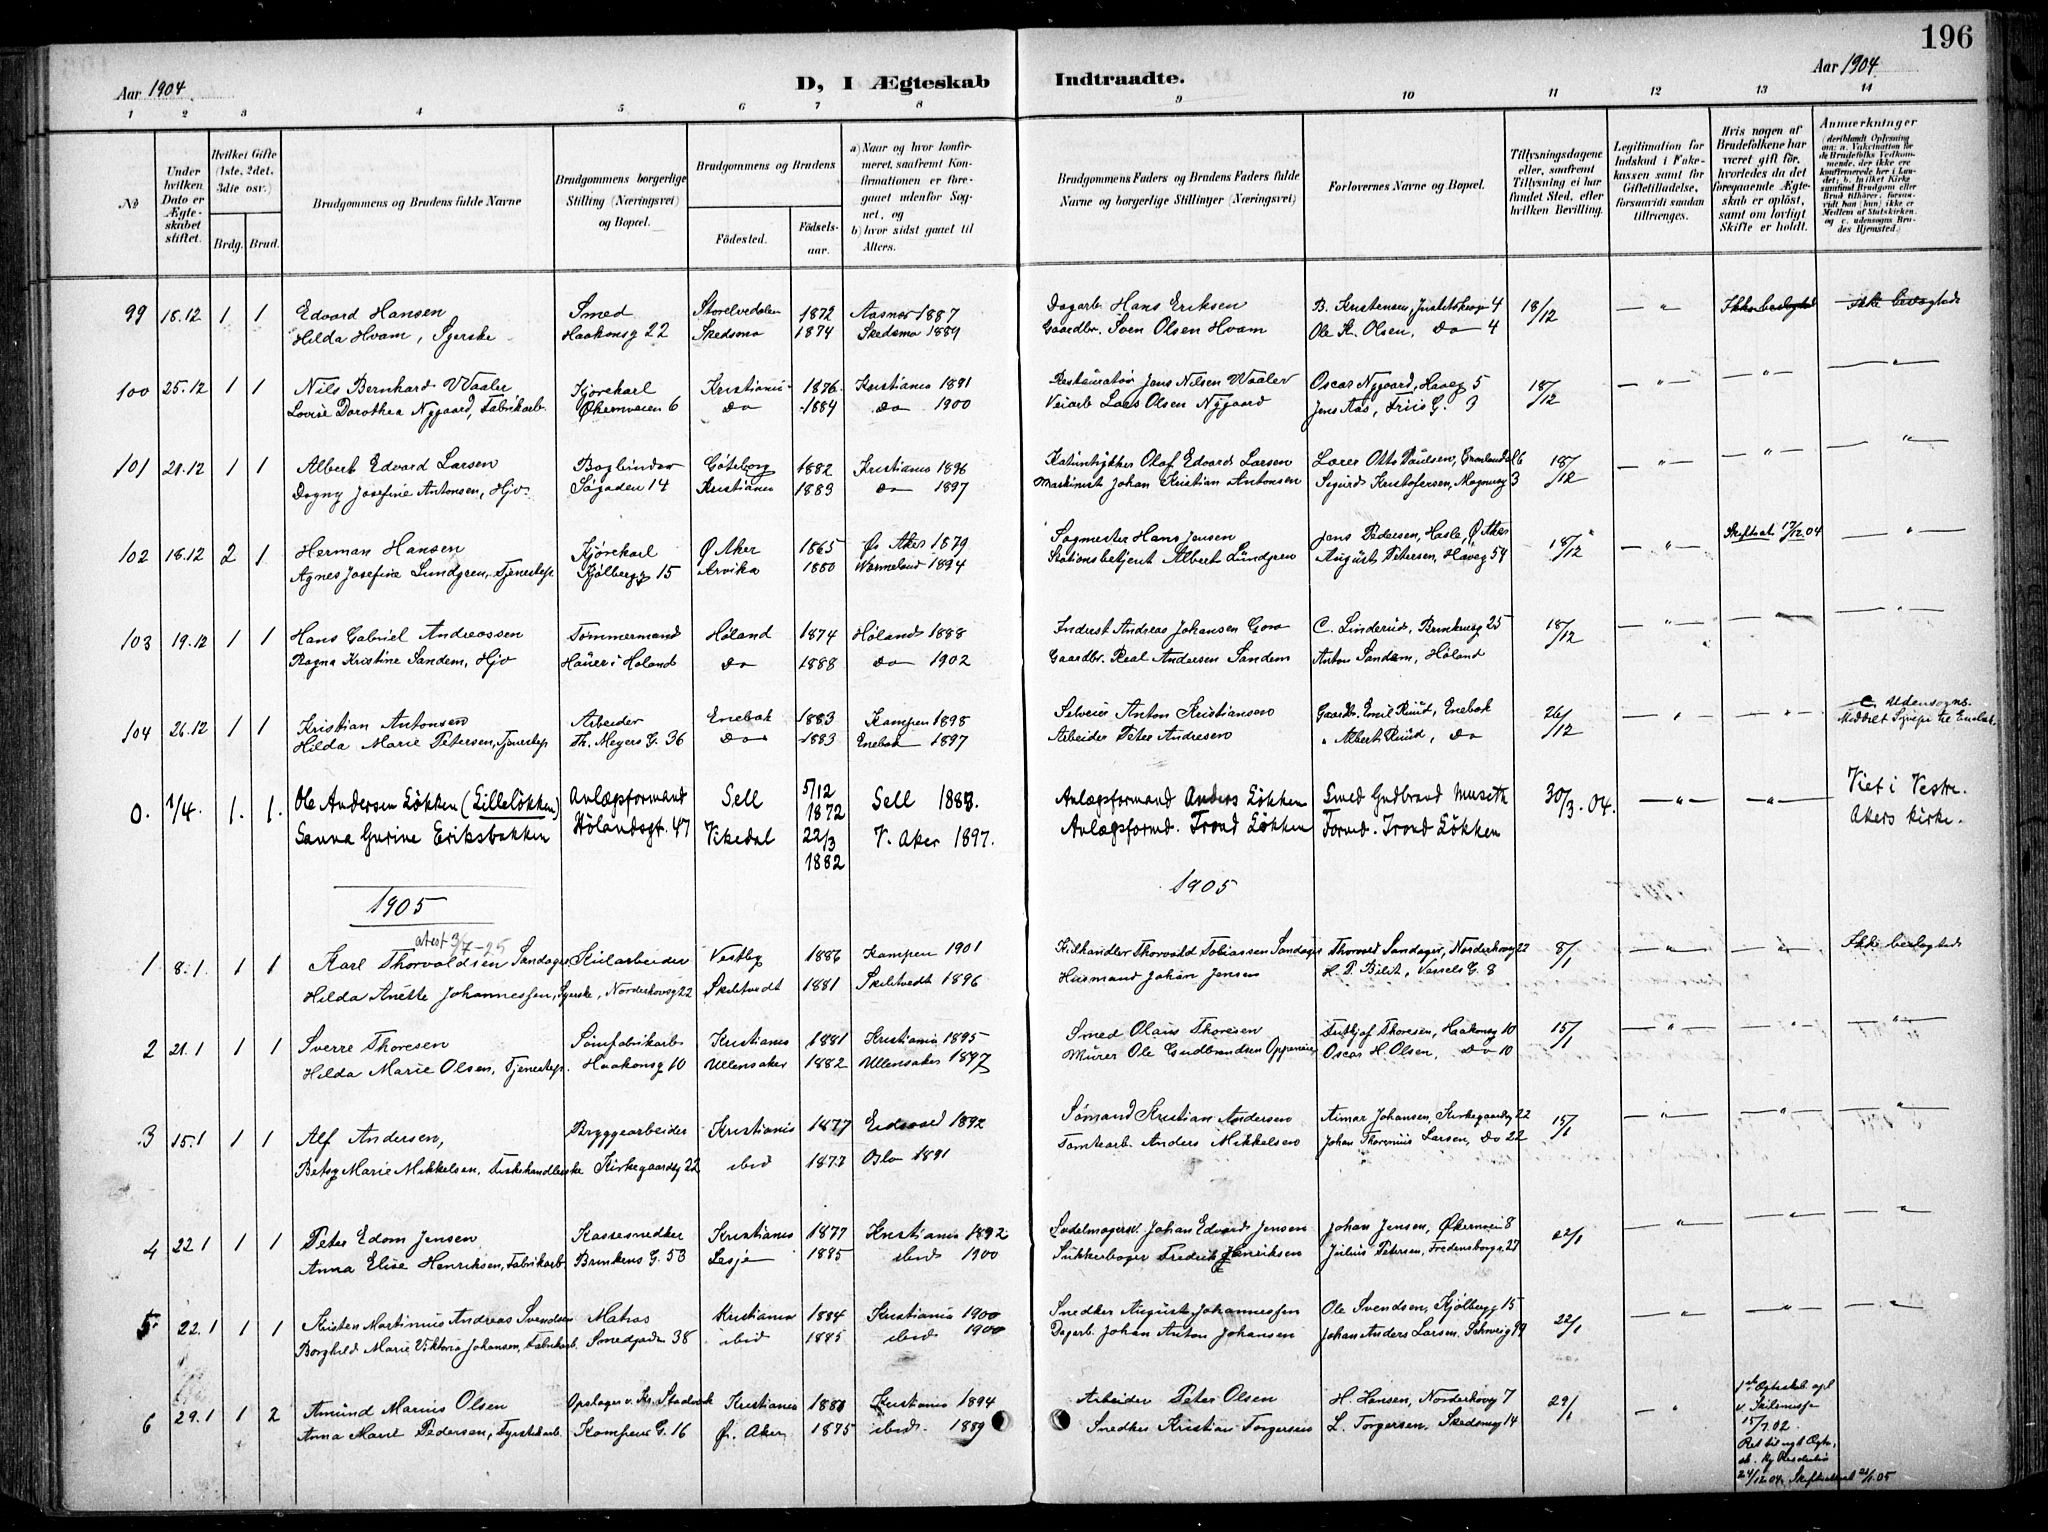 196
Aar 1904
D, I Ægteskab
Indtraadte.
Aar 1904
1 2 3 4 5 6 7 8 9 10 11 12 13 14
No
Under hvilken Dato er Ægteskabet stiftet.
Hvilket Gifte (1ste, 2det, 3die osv.)
Brdg. Brud.
Brudgommens og Brudens fulde Navne
Brudgommens borgerlige Stilling (Næringsvei) og Bopæl.
Brudgommens og Brudens
Födested. Födselsaar.
a) Naar og hvor konfirmeret, saafremt Konfirmationen er foregaaet udenfor Sognet, og
b) hvor sidst gaaet til Alters.
Brudgommens Faders og Brudens Faders fulde Navne og borgerlige Stillinger (Næringsvei)
Forlovernes Navne og Bopæl.
Tillysningsdagene eller, saafremt Tillysning ei har fundet Sted, efter hvilken Bevilling.
Legitimation for Indskud i Enkekassen samt for Giftetilladelse, forsaavidt saadan tiltrænges.
Hvis nogen af Brudefolkene har været gift för, hvorledes da det foregaaende Ægteskab er oplöst, samt om lovligt Skifte er holdt.
Anmærkninger
99 18.12 1 1 Edvard Hansen Smed Storelvedalen 1872 Aasnes 1887 Dagarb. Hans Eriksen B. Kristensen, 4 18/12 — " — Ikke beslægtede
Hilda Hvam, Syerske Haakonsg 22 Skedsmo 1874 Skedsmo 1889 Gaardbr. Sven Olsen Hvam Ole K. Olsen, Do 4
100 25.12 1 1 Nils Bernhard Waaler Kjørekarl Kristiania 1876 Kristiania 1891 Restauratør Jens Nilsen Waaler Oscar Nygaard, Haveg 5 18/12 — " — — " — — " —
Lovise Dorothea Nygaard, Fabrikarb. Økernveien 6 Do 1884 Do 1900 Veiarb Lars Olsen Nygaard Jens Aas, Friis G. 3
101 21.12 1 1 Albert Edvard Larsen Bogbinder Göteborg 1882 Kristiania 1896 Olaf Edvard Larsen Lærer Otto Paulsen, 18/12 — " — — " — — " —
Dagny Josefine Antonsen, Hjv. Søgaden 14 Kristiania 1883 Do 1897 Maskinist Johan Kristian Antonsen Sigurd Kristofersen, 3
102 18.12 2 1 Herman Hansen Kjørekarl Ø Aker 1865 Øs Aker 1879 Sagmester Hans Jensen Jens Pedersen, Hasle, Ø Aker 18/12 — " — Skifteat 17/12 04 — " —
Agnes Josefine Lundgren, Tjenestep Kjølbergg 15 Arvika 1880 Wermeland 1894 Stationsbetjent Albert Lundgren August Petersen, Haveg 54
103 19.12 1 1 Hans Gabriel Andreassen Tømmermand Høland 1874 Høland 1888 Inderst Andreas Johansen C. Linderud, 25 18/12 — " — — " — — " —
Ragna Kristine Sandem, Hjv Høland Do 1888 Do 1902 Gaardbr. Andersen Sandem Anton Sandem, Høland
104 26.12 1 1 Kristian Antonsen Arbeider Enebak 1883 Kampen 1898 Selveier Anton Kristiansen Gaardbr. Emil Ruud, Enebak 26/12 — " — — " — c. Udensogns.
Hilda Marie Petersen, Tjenestep Th. Meyers G. 36 Do 1883 Enebak 1897 Arbeider Peter Andresen " Albert Ruud, Do
0. 1/4. 1. 1. Ole Andersen Løkken (Lilleløkken) Anlægsformand Sell 5/12 1872 Sell 1887. Anlægsformand Anders Løkken Smed Gudbrand Musuth 30/3. 04. — " — — " — Viet i Vestre
Sanna Gurine Eriksbakken Hølandsgt. 47 Vikedal 22/3 1882 V. Aker 1897. Anlægsformd. Trond Løkken Formd. Trond Løkken Akers kirke.
1905 1905
atest 3/7-25
1 8.1 1 1 Karl Thorvaldsen Sandager Kularbeider Vestby 1886 Kampen 1901 Kulhandler Thorvald Tobiassen Sandager Thorvald Sandager, Norderhovg 22 8/1 — " — — " — Ikke beslægtede
Hilda Anette Johannessen, Syerske, Norderhovsg 22 Skiptvedt 1881 Skiptvedt 1896 Husmand Johan Jensen H. P. Bilit, Vessels G. 8
2 21.1 1 1 Sverre Thoresen Sømfabrikarb Kristiania 1881 Kristiania 1895 Smed Olaus Thoresen Fritjof Thoresen, Haakonsg 10 15/1 — " — — " — — " —
Hilda Marie Olsen, Tjenestep. Haakonsg 10 Ullensaker 1882 Ullensaker 1897 Murer Ole Gudbrandsen Oscar H. Olsen, Do 10
3 15.1 1 1 Alf Andersen, Bryggearbeider Kristiania 1877 Eidsvold 1892 Sømand Kristian Andersen Johansen, Kirkegaardsg 22 15/1 — " — — " — — " —
Betsy Marie Mikkelsen, Fiskehandlerske Kirkegaardsg 22 ibid 1877 Oslo 1891 Tomtearb. Anders Mikkelsen Johan Larsen, Do 22
4 22.1 1 1 Peter Edom Jensen Kassesnedker Kristiania 1877 Kristiania 1892 Sadelmagersv. Johan Edvard Jensen Johan Jensen, Økernvei 8 22/1 — " — — " — — " —
Anna Elise Henriksen, Fabrikarb Brinkens G. 53 Lesje 1885 ibid 1900 Sukkerbager Fredrik Henriksen Julius Petersen, Fredensborgv. 27
5 22.1 1 1 Kristen Martinius Andreas Svendsen Matros Kristiania 1884 Kristiania 1900 Snedker August Johannessen Ole Svendsen, Kjølbergg 15 22/1 — " — — " — — " —
Borghild Marie Viktoria Johansen, Fabrikarb. Smedgaden 38 ibid 1885 ibid 1900 Dagarb. Johan Anton Johansen Johan Anders Larsen, Schweig 99
6 29.1 1 2 Amund Marius Olsen Opslager v. Kristiania 1880 Kristiania 1894 Arbeider Peter Olsen H. Hansen, Norderhovg 7 29/1 — " — 1ste Ægteskab opl
Anna Marit Pedersen, Fyrstikarb. Kampens G. 16 Ø. Aker 1875 ibid. 1889 Snedker Kristian Torgersen L. Torgersen, Skedsmog 14 v. Skilsmisse
15/7.02
Ret til nyt Ægte.
24/12.04, Skifteattest 21/1.05